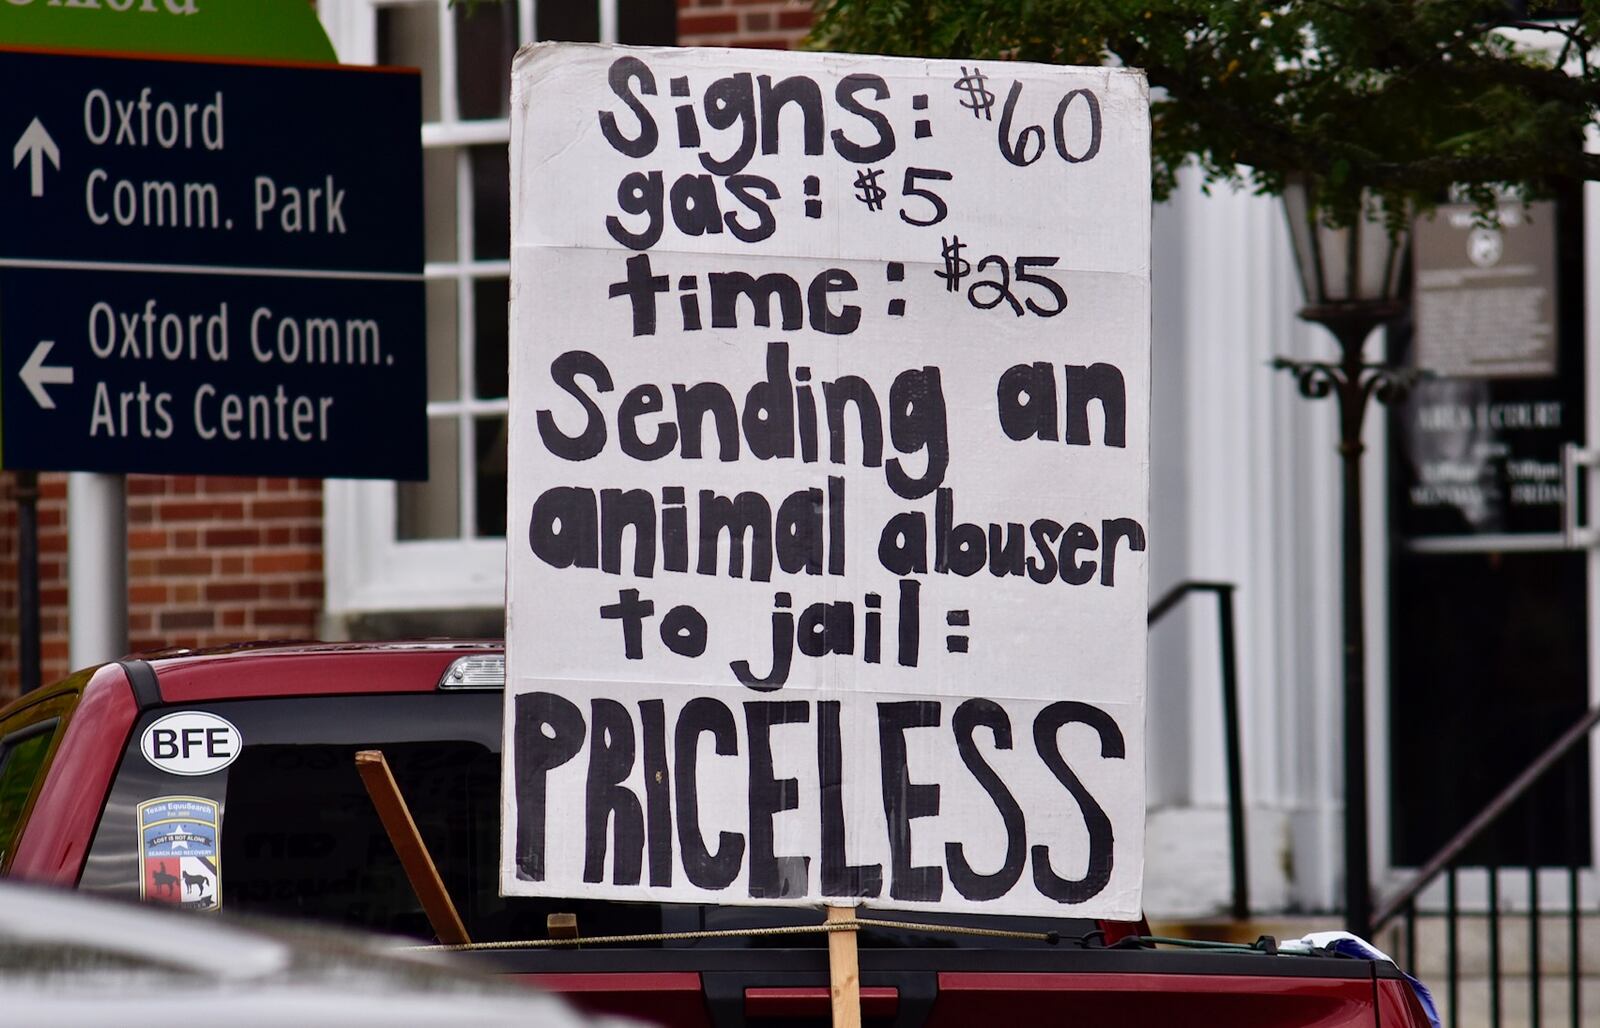 Oxford
Oxford
Comm. Park
Oxford Comm.
Arts Center
Signs: $60
gas: $5
time: $25
Sending an
animal abuser
to jail:
PRICELESS
BFE
Texas EquuSearch
LOST IS NOT ALONE
SEARCH AND RECOVERY
AREA I COURT